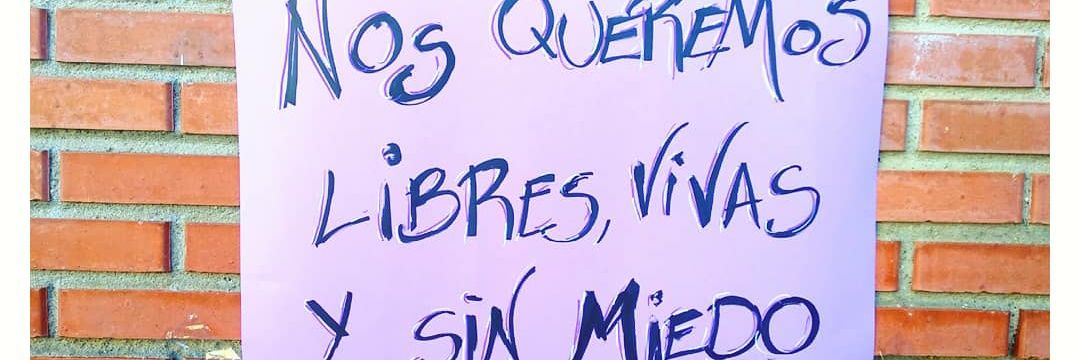 NOS QUEREMOS
LIBRES, VIVAS
Y SIN MIEDO